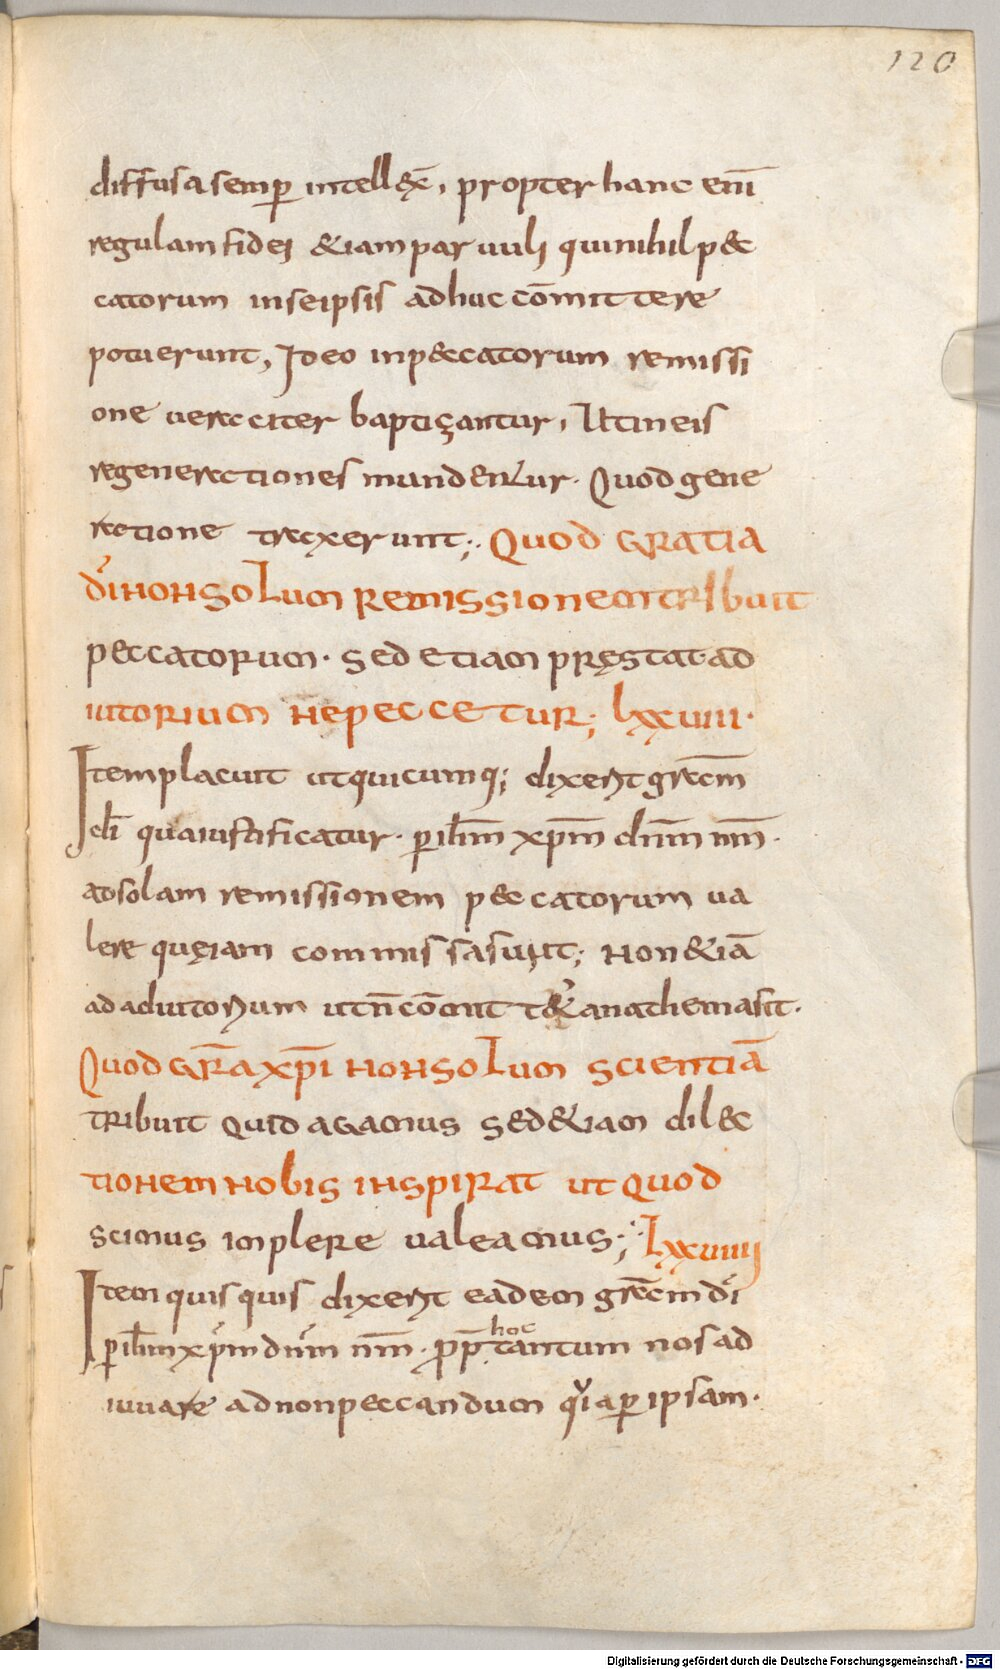 120
diffusa semp intellex̄, propter hanc enī
regulam fidei &iam paruuli qui nihil p&c
catorum inseipsis adhuc cōmittere
potuerunt, Ideo inp&ccatorum remissi
one ueraciter baptiçantur, Ut in eis
regenerationes mundentur. Quod gene
ratione traxerunt;. QUOD GRATIA
dī NON SOLUM REMISSIONEM TRIBUIT
PECCATORUM. SED ETIAM PRĘSTAT AD
IUTORIUM NE PECCETUR; LXXVIII.
Item placuit ut quicumq; dixerit gracm̄
dī qua iustificatur. p ihm̄ xpm̄ dnm̄ nm̄.
ad solam remissionem p&ccatorum ua
lere quę iam commissa sunt; Non &iā
ad adiutorium ut n̄ cōmittat&r anathema sit.
QUOD GRĀ XPĪ NON SOLUM SCIENTIĀ
TRIBUIT QUID AGAMUS SED &IAM DIL&C
TIONEM NOBIS INSPIRAT UT QUOD
SCIMUS IMPLERE UALEAMUS; LXXVIIII
Item quisquis dixerit eadem gracm dī
p ihm xpm dnm nm̄. pp̄ hoc tantum nos ad
iuuare ad non peccandum qia p ipsam.
Digitalisierung gefördert durch die Deutsche Forschungsgemeinschaft - DFG